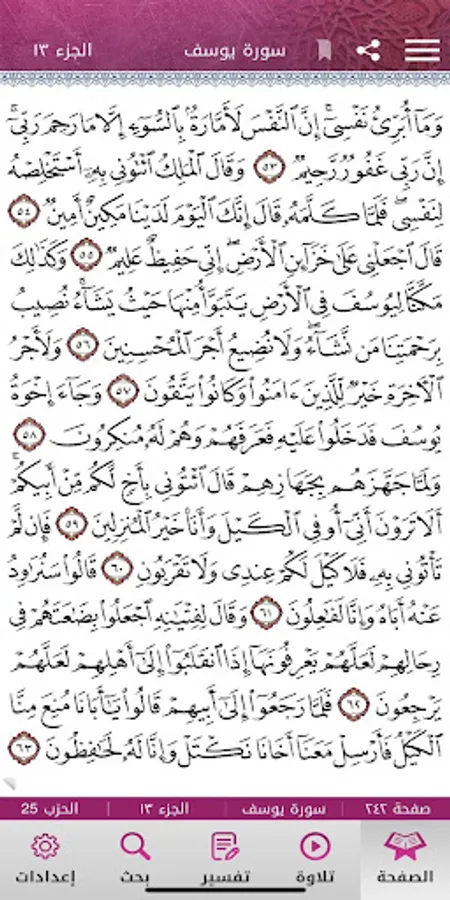 الجزء ١٣ سورة يوسف
وَمَآ أُبَرِّئُ نَفْسِىٓ ۚ إِنَّ ٱلنَّفْسَ لَأَمَّارَةٌۢ بِٱلسُّوٓءِ إِلَّا مَا رَحِمَ رَبِّىٓ ۚ
إِنَّ رَبِّى غَفُورٌ رَّحِيمٌ ٥٣ وَقَالَ ٱلْمَلِكُ ٱئْتُونِى بِهِۦٓ أَسْتَخْلِصْهُ
لِنَفْسِى ۖ فَلَمَّا كَلَّمَهُۥ قَالَ إِنَّكَ ٱلْيَوْمَ لَدَيْنَا مَكِينٌ أَمِينٌ ٥٤
قَالَ ٱجْعَلْنِى عَلَىٰ خَزَآئِنِ ٱلْأَرْضِ ۖ إِنِّى حَفِيظٌ عَلِيمٌ ٥٥ وَكَذَٰلِكَ
مَكَّنَّا لِيُوسُفَ فِى ٱلْأَرْضِ يَتَبَوَّأُ مِنْهَا حَيْثُ يَشَآءُ ۚ نُصِيبُ
بِرَحْمَتِنَا مَن نَّشَآءُ ۖ وَلَا نُضِيعُ أَجْرَ ٱلْمُحْسِنِينَ ٥٦ وَلَأَجْرُ
ٱلْـَٔاخِرَةِ خَيْرٌ لِّلَّذِينَ ءَامَنُوا۟ وَكَانُوا۟ يَتَّقُونَ ٥٧ وَجَآءَ إِخْوَةُ
يُوسُفَ فَدَخَلُوا۟ عَلَيْهِ فَعَرَفَهُمْ وَهُمْ لَهُۥ مُنكِرُونَ ٥٨
وَلَمَّا جَهَّزَهُم بِجَهَازِهِمْ قَالَ ٱئْتُونِى بِأَخٍ لَّكُم مِّنْ أَبِيكُمْ ۚ
أَلَا تَرَوْنَ أَنِّىٓ أُوفِى ٱلْكَيْلَ وَأَنَا۠ خَيْرُ ٱلْمُنزِلِينَ ٥٩ فَإِن لَّمْ
تَأْتُونِى بِهِۦ فَلَا كَيْلَ لَكُمْ عِندِى وَلَا تَقْرَبُونِ ٦٠ قَالُوا۟ سَنُرَٰوِدُ
عَنْهُ أَبَاهُ وَإِنَّا لَفَٰعِلُونَ ٦١ وَقَالَ لِفِتْيَٰنِهِ ٱجْعَلُوا۟ بِضَٰعَتَهُمْ فِى
رِحَالِهِمْ لَعَلَّهُمْ يَعْرِفُونَهَآ إِذَا ٱنقَلَبُوٓا۟ إِلَىٰٓ أَهْلِهِمْ لَعَلَّهُمْ
يَرْجِعُونَ ٦٢ فَلَمَّا رَجَعُوٓا۟ إِلَىٰٓ أَبِيهِمْ قَالُوا۟ يَٰٓأَبَانَا مُنِعَ مِنَّا
ٱلْكَيْلُ فَأَرْسِلْ مَعَنَآ أَخَانَا نَكْتَلْ وَإِنَّا لَهُۥ لَحَٰفِظُونَ ٦٣
صفحة ٢٤٢ | سورة يوسف | الجزء ١٣ | الحزب 25
الصفحة تلاوة تفسير بحث إعدادات